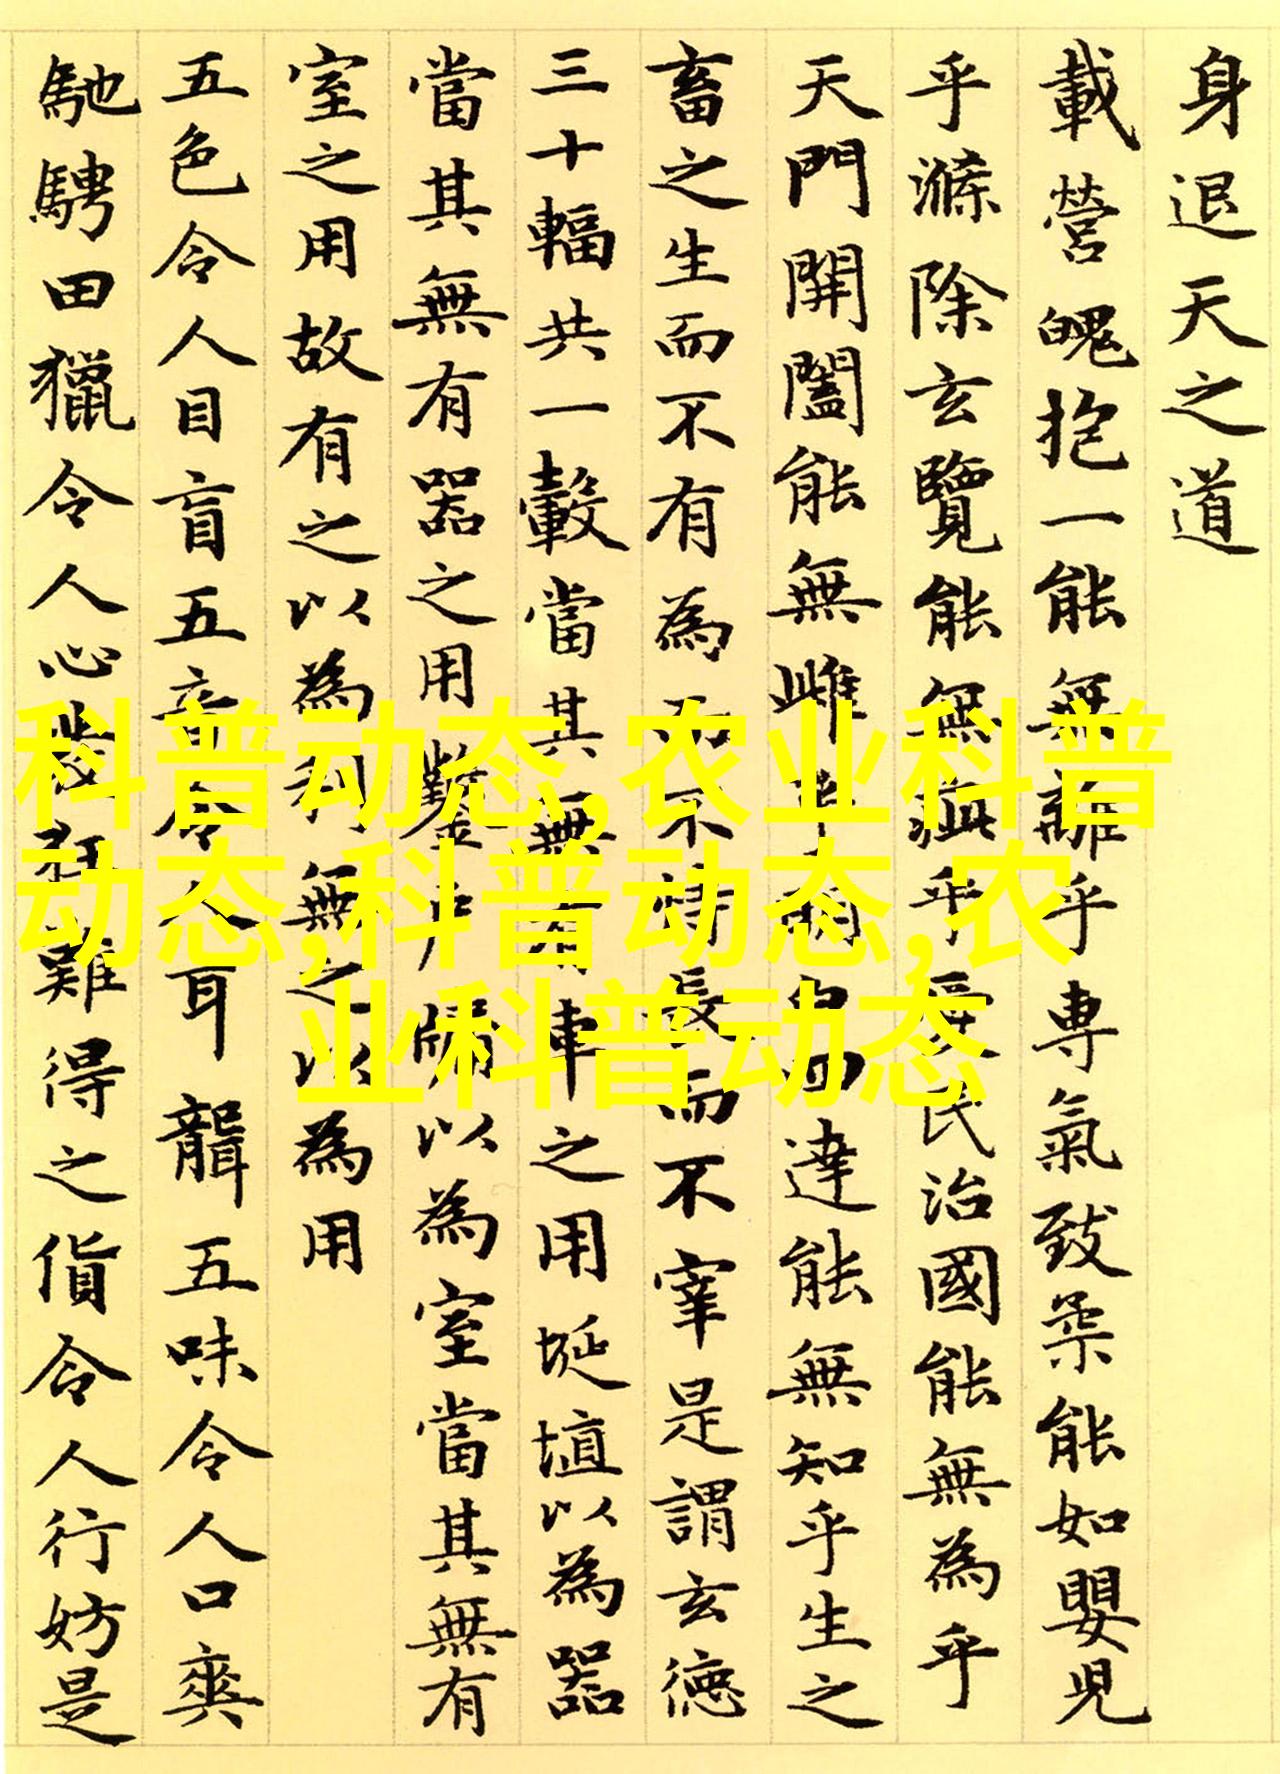 身退天之道
載營魄抱一能無離乎專氣致柔能如嬰兒
乎滌除玄覽能無疵乎愛民治國能無為乎
天門開闔能無雌乎明白四達能無知乎生之
畜之生而不有為而不恃長而不宰是謂玄德
三十輻共一轂當其無有車之用埏埴以為器
當其無有器之用鑿戶牖以為室當其無有
室之用故有之以為利無之以為用
五色令人目盲五音令人耳聾五味令人口爽
馳騁田獵令人心發狂難得之貨令人行妨是
科普动态,农业科普
动态,科普动态,农
业科普动态